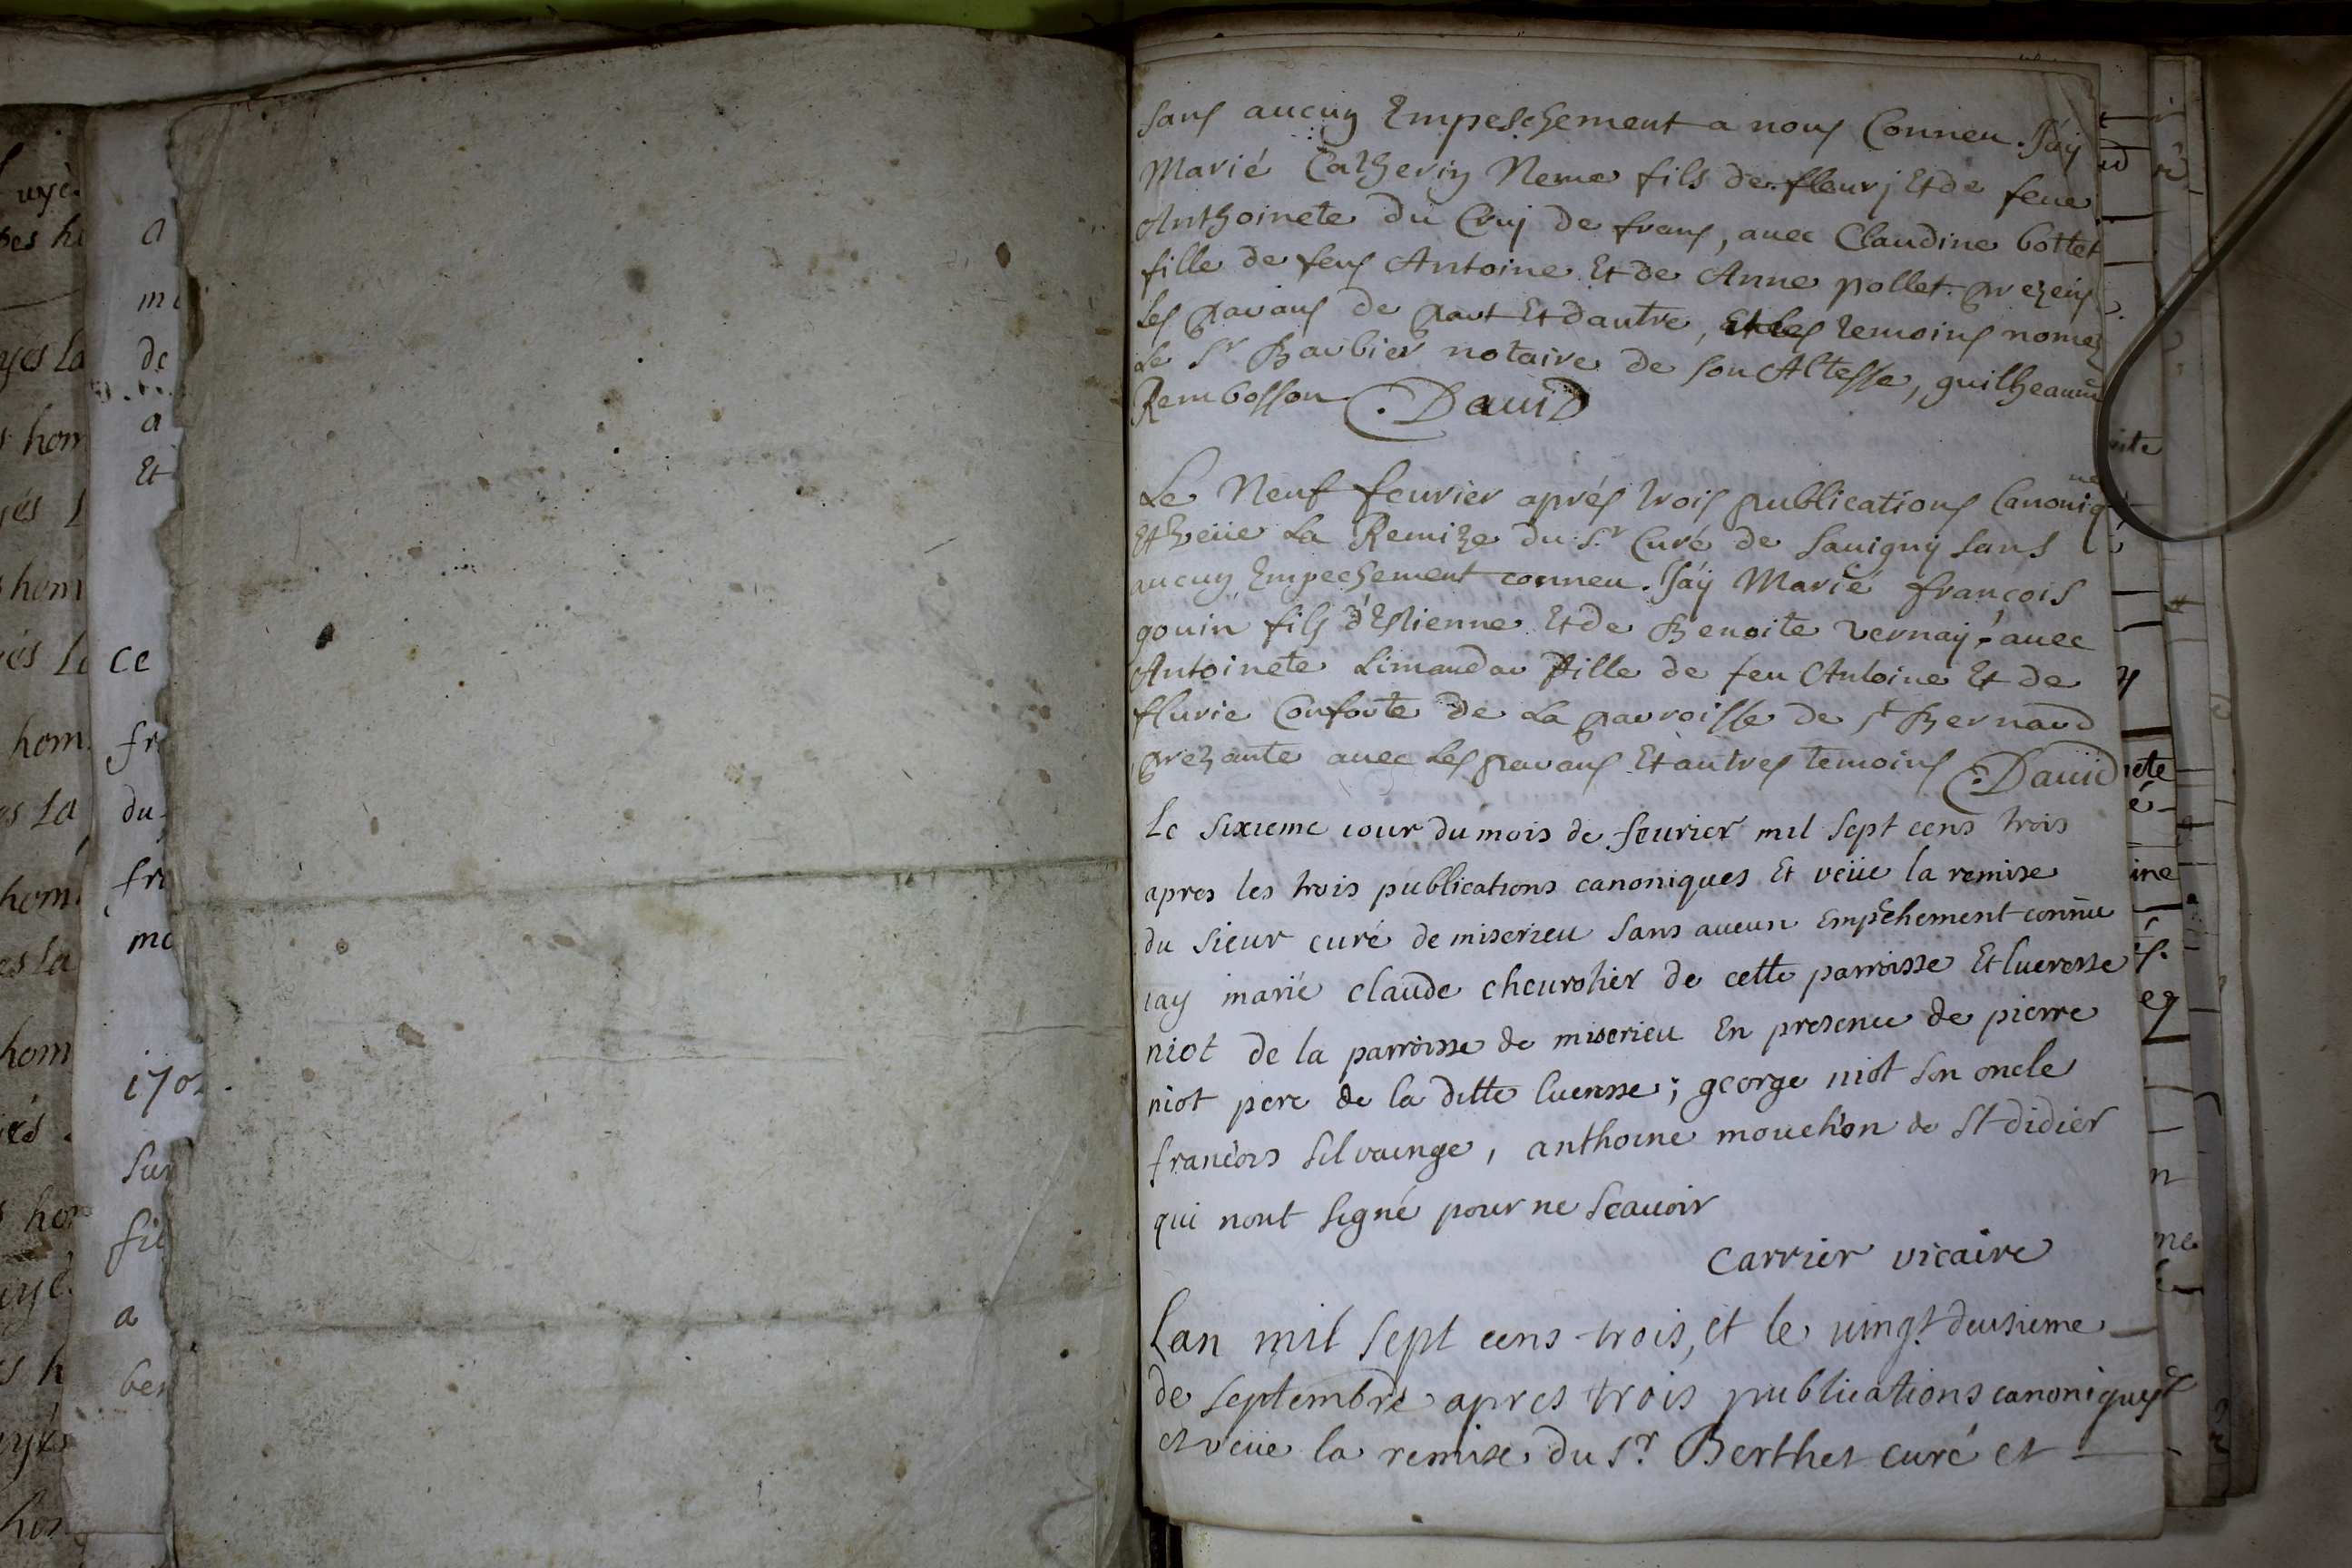 sans aucun Empeschement a nous Conneu. J'ay
Marié Catherin Neme fils de fleurj Et de feue
Anthoinete du Cruj de frans, avec Claudine bottet
fille de feus Antoine Et de Anne pollet. prezens
Les parans de part Et dautre, Et les temoins nomez
Le Sr Barbier notaire de son Altesse, guilheaume
Rembosson David
Le Neuf feurier aprés trois publications Canoniq
ues
Et veüe La Remize du Sr Curé de Sauigny sans
aucun Empechement conneu. J'aÿ Marié françois
gouin fils d'Estienne Et de Benoite vernay, auec
Antoinete Limandar fille de feu Antoine Et de
flurie Conforte de La parroisse de St Bernard
prezante auec Les parans Et autres temoins David
Le sixieme iour du mois de feurier mil sept cens trois
apres les trois publications canoniques Et veüe la remise
du sieur curé de miserieu sans aucun Empechement connu
iay marié claude cheurotier de cette parroisse Et lucresse
niot de la parroisse de miserieu En presence de pierre
niot pere de la ditte lucresse; george niot son oncle
françois silvainge, anthoine mouchon de St didier
qui nont signé pour ne scauoir
carrier vicaire
Lan mil sept cens trois, et le vingt deusieme
de septembre apres trois publications canoniques
et veüe la remise du Sr. Berthet curé et
a
de
a
Et
ce
fr
du
fri
170
sur
fil
a
ber